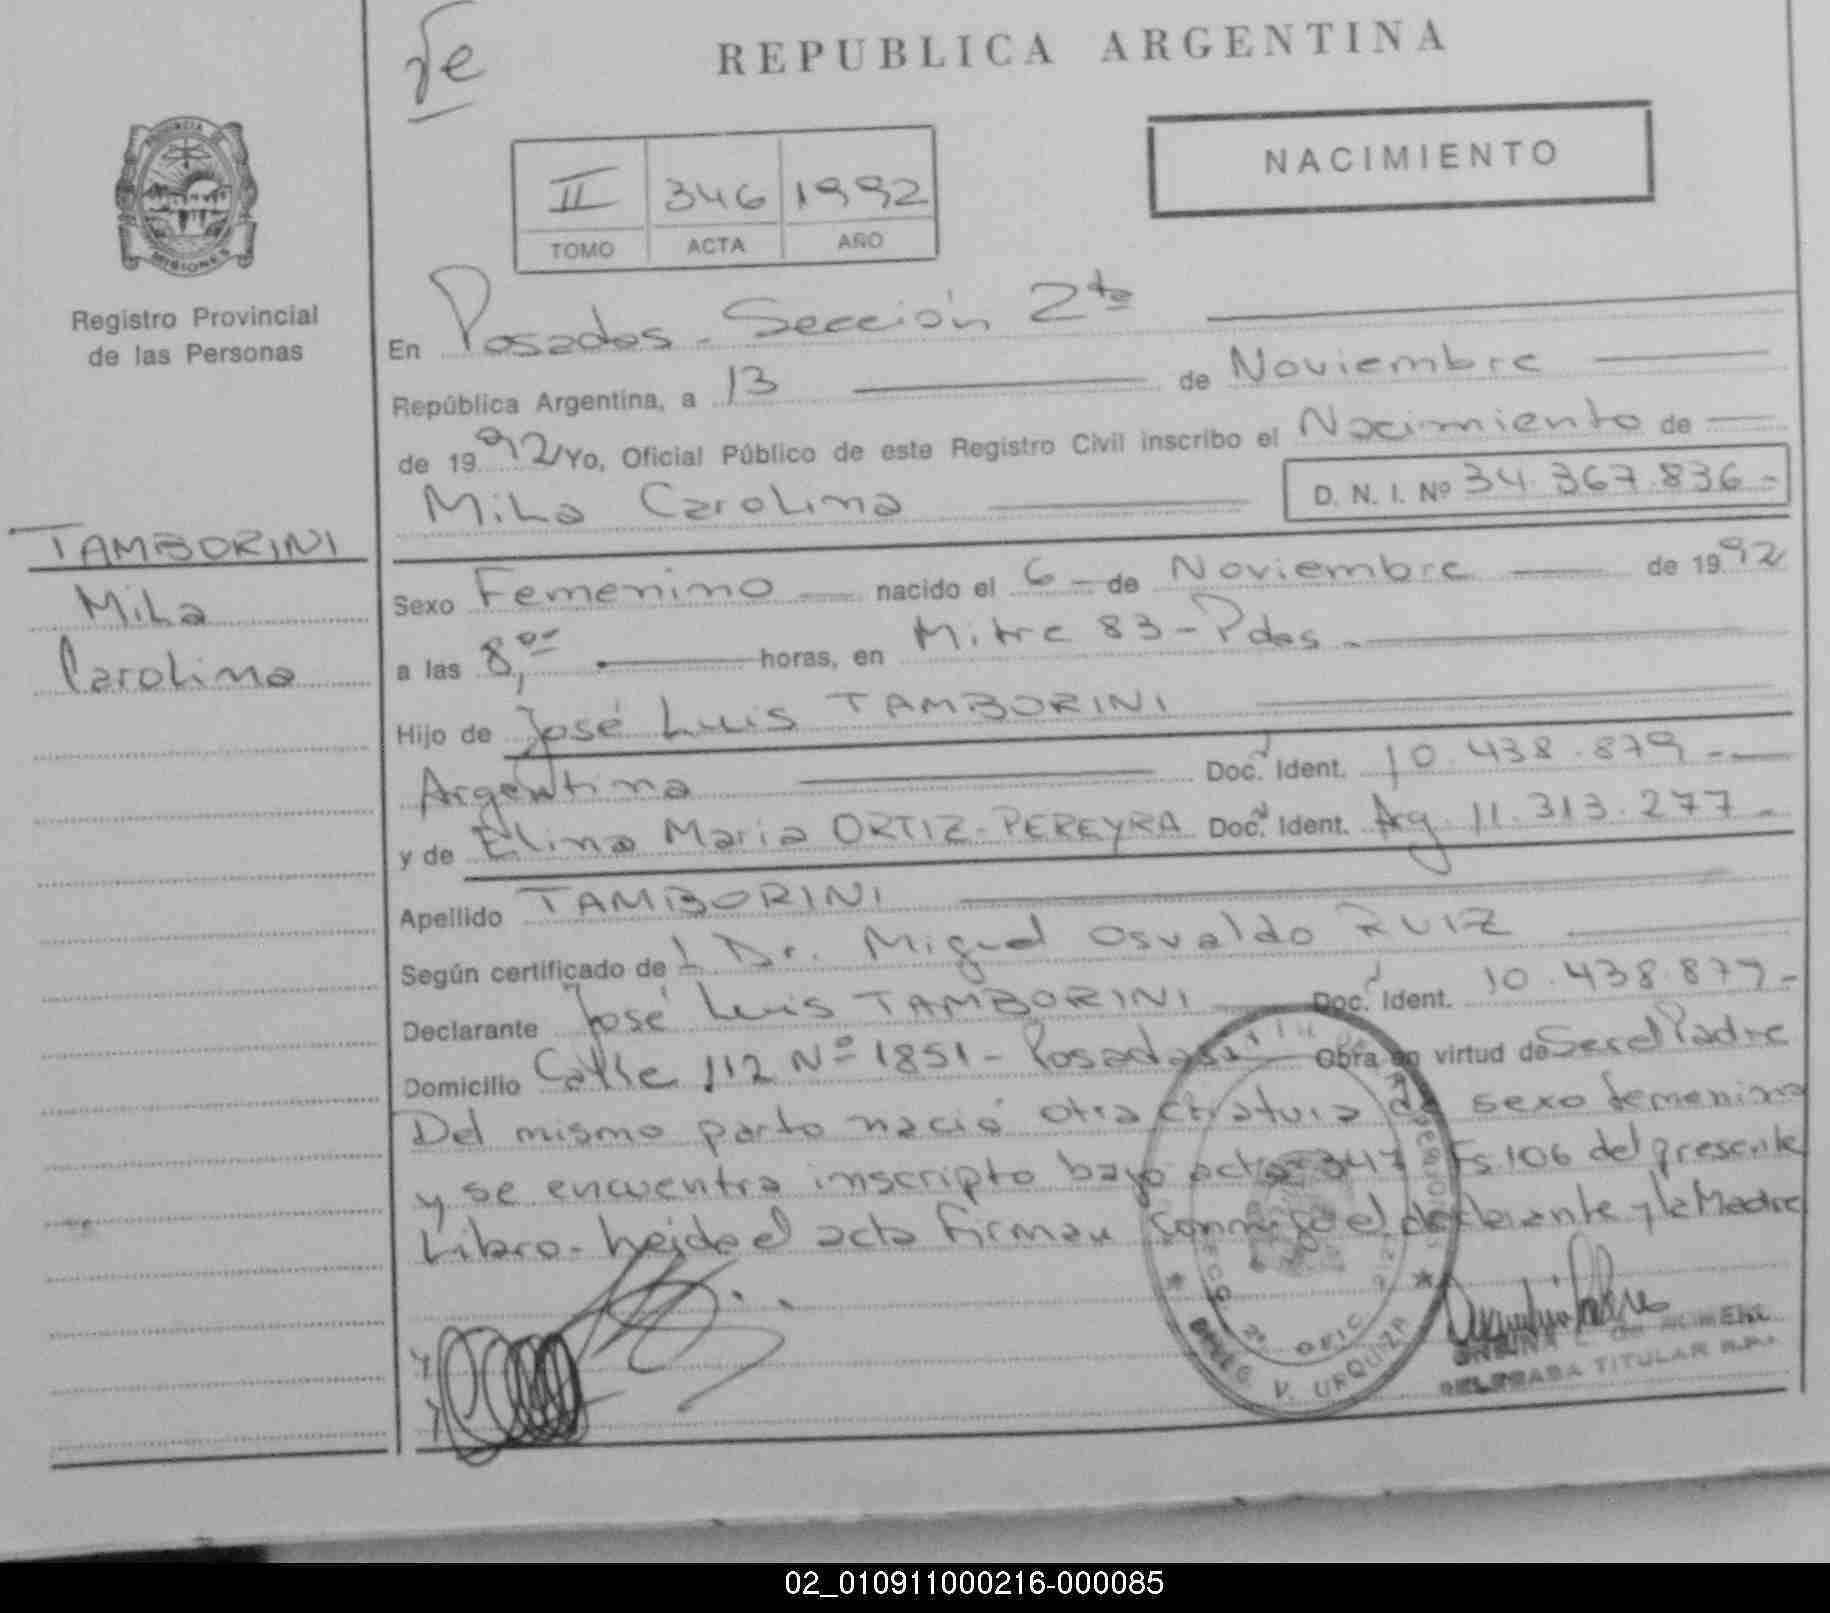 REPUBLICA ARGENTINA
NACIMIENTO
II 346 1992
TOMO ACTA AÑO
PROVINCIA
MISIONES
Registro Provincial
de las Personas
TAMBORINI
Mila
Carolina
En Posadas - Sección 2da
República Argentina, a 13 de Noviembre
de 1992 Yo, Oficial Público de este Registro Civil inscribo el Nacimiento de
Mila Carolina D. N. I. Nº 34.367.836-
Sexo Femenino nacido el 6 de Noviembre de 1992
a las 8,00 horas, en Mitre 83 - Pdas -
Hijo de José Luis TAMBORINI
Argentina Doc. Ident. 10.438.879-
y de Elina Maria ORTIZ-PEREYRA Doc. Ident. Arg. 11.313.277-
Apellido TAMBORINI
Según certificado del Dr. Miguel Osvaldo RUIZ
Declarante José Luis TAMBORINI Doc. Ident. 10.438.879-
Domicilio Calle 112 Nº 1851 - Posadas Obra en virtud de Ser el Padre
Del mismo parto nació otra criatura de sexo femenino
y se encuentra inscripto bajo acta 347 Fs 106 del presente
Libro - Leída el acta firman conmigo el declarante y la Madre
2ª OFIC.
V. URQUIZA
DELEGADA TITULAR R.P.
02_010911000216-000085